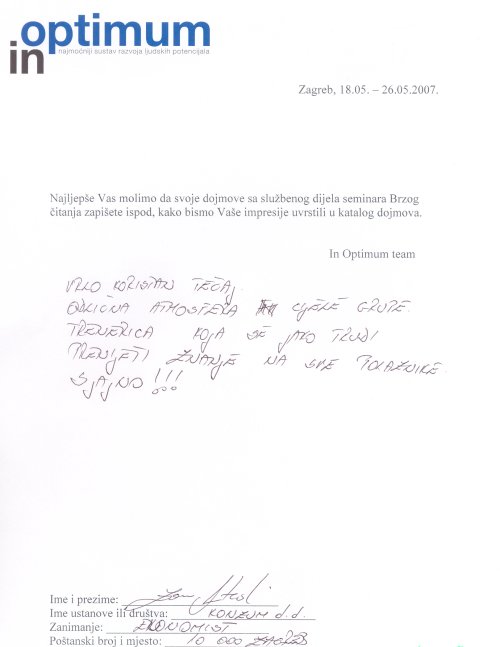 in optimum
najmoćniji sustav razvoja ljudskih potencijala
Zagreb, 18.05. – 26.05.2007.
Najljepše Vas molimo da svoje dojmove sa službenog dijela seminara Brzog
čitanja zapišete ispod, kako bismo Vaše impresije uvrstili u katalog dojmova.
In Optimum team
VRLO KORISTAN TEČAJ.
ODLIČNA ATMOSFERA CIJELE GRUPE.
TRENERICA KOJA SE JAKO TRUDI
PRENIJETI ZNANJE NA SVE POLAZNIKE
SJAJNO!!!
Ime i prezime:
Ime ustanove ili društva: KONZUM d.d.
Zanimanje: EKONOMIST
Poštanski broj i mjesto: 10 000 ZAGREB